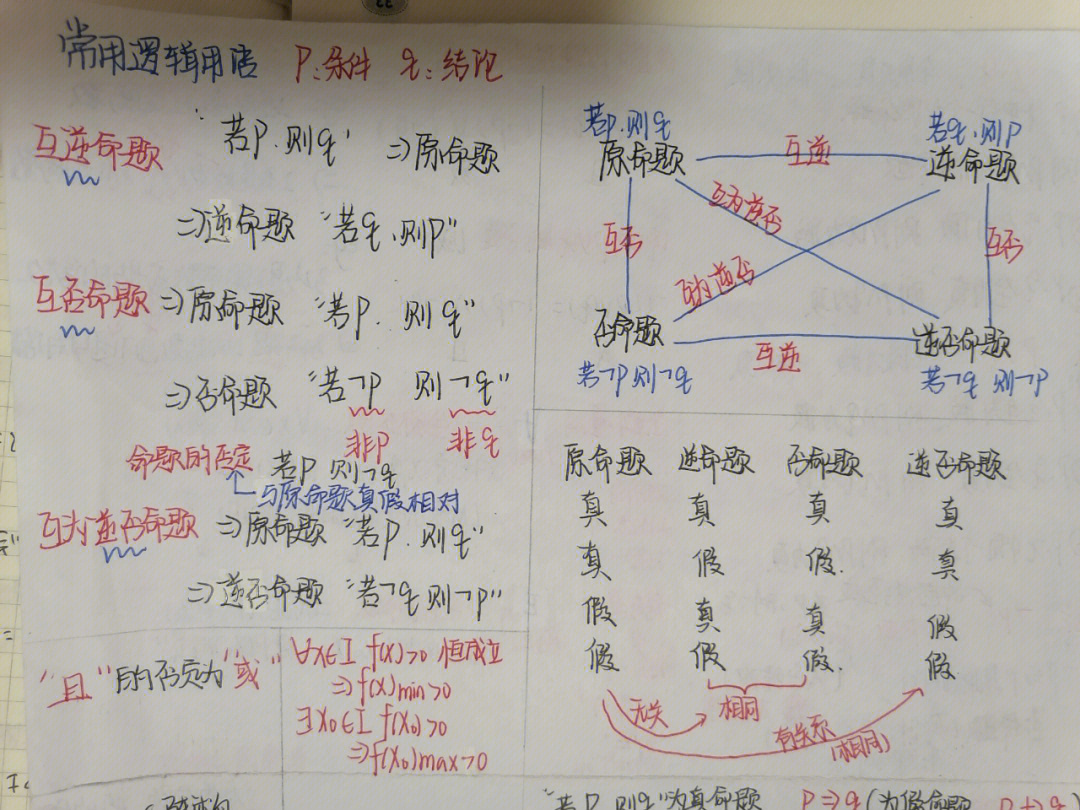 常用逻辑用语 p:条件 q:结论
互逆命题 "若p.则q" ⇒原命题
⇒逆命题 "若q,则p"
互否命题 ⇒原命题 "若p. 则q"
⇒否命题 "若¬p 则¬q"
非p 非q
命题的否定 若p 则¬q
与原命题真假相对
互为逆否命题 ⇒原命题 "若p.则q"
⇒逆否命题 "若¬q 则¬p"
"且"的否定为"或"
∀x∈I f(x)>0 恒成立
⇒f(x)min>0
∃x₀∈I f(x₀)>0
⇒f(x₀)max>0
若p.则q 若q,则p
原命题 互逆 逆命题
互为逆否
互否 互否
互为逆否
否命题 互逆 逆否命题
若¬p则¬q 若¬q 则¬p
原命题 逆命题 否命题 逆否命题
真 真 真 真
真 假 假. 真
假 真 真 假
假 假 假. 假
无关 相同
有关系
(相同)
"若p 则q"为真命题 p⇒q(为假命题